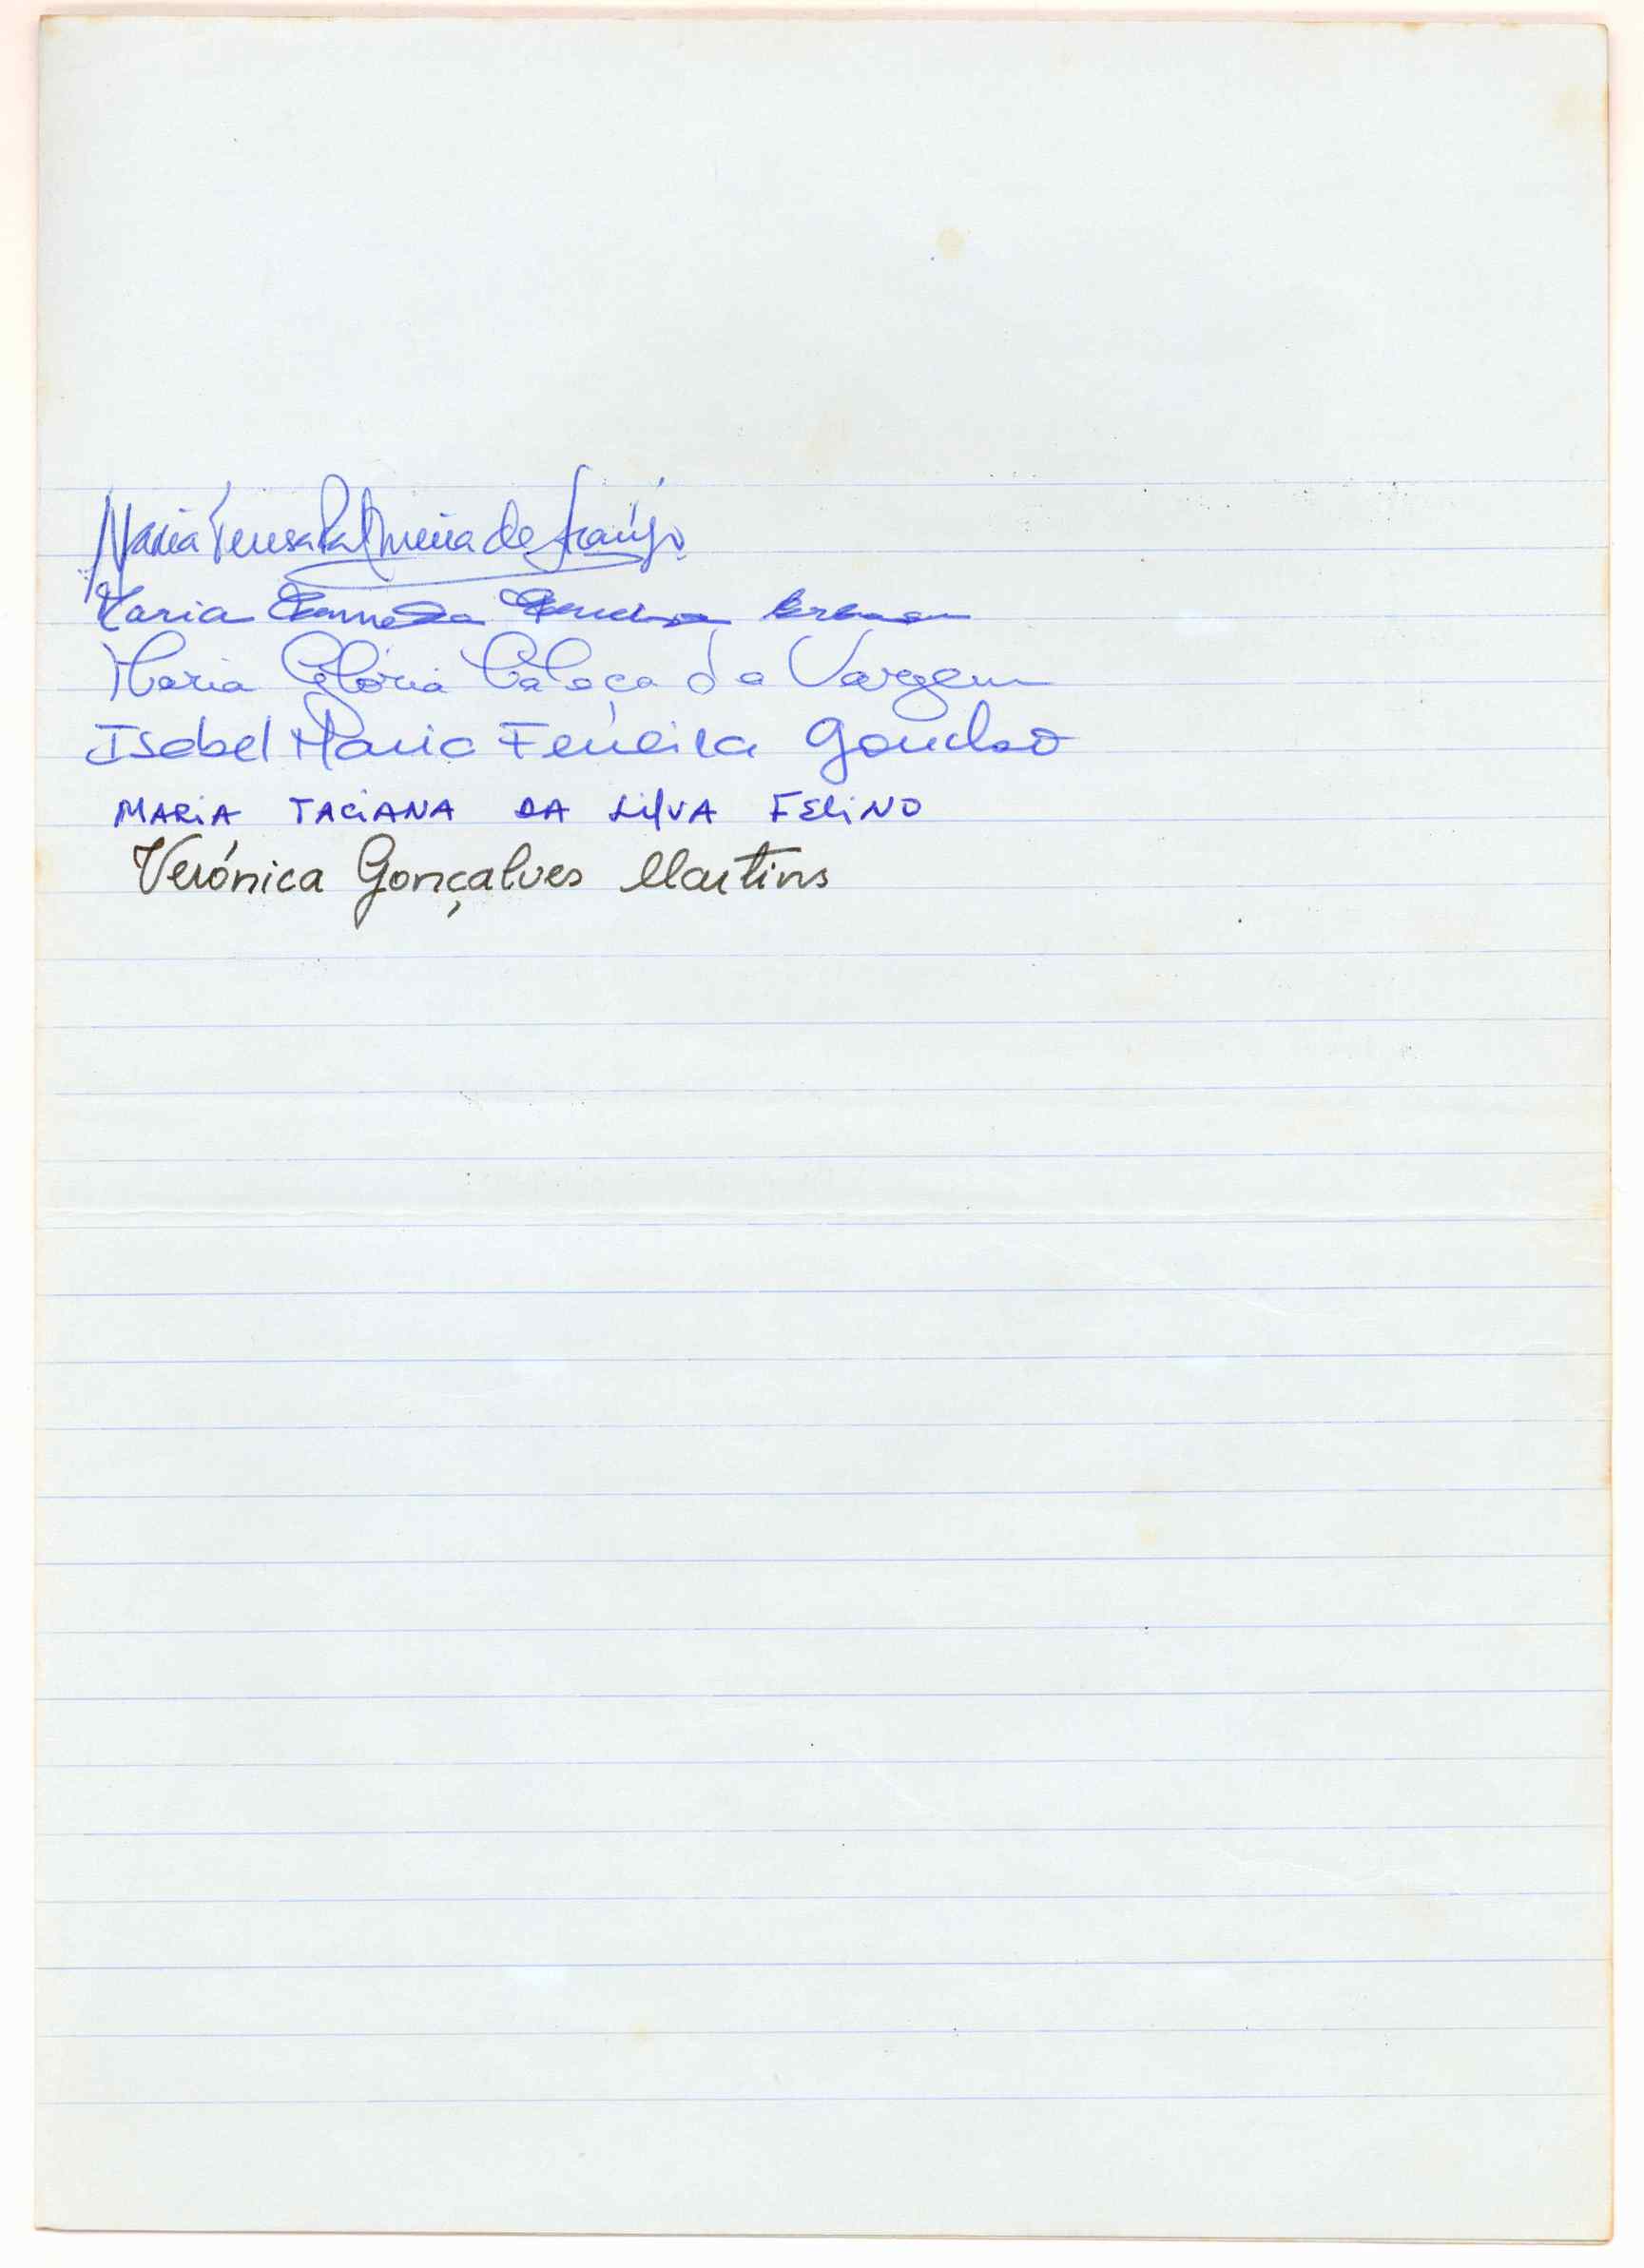 Maria Teresa Palmeira de Araújo
Maria
Maria Glória Calaça da Vargem
Isabel Maria Ferreira Gancho
MARIA TACIANA DA SILVA FELINO
Verónica Gonçalves Martins